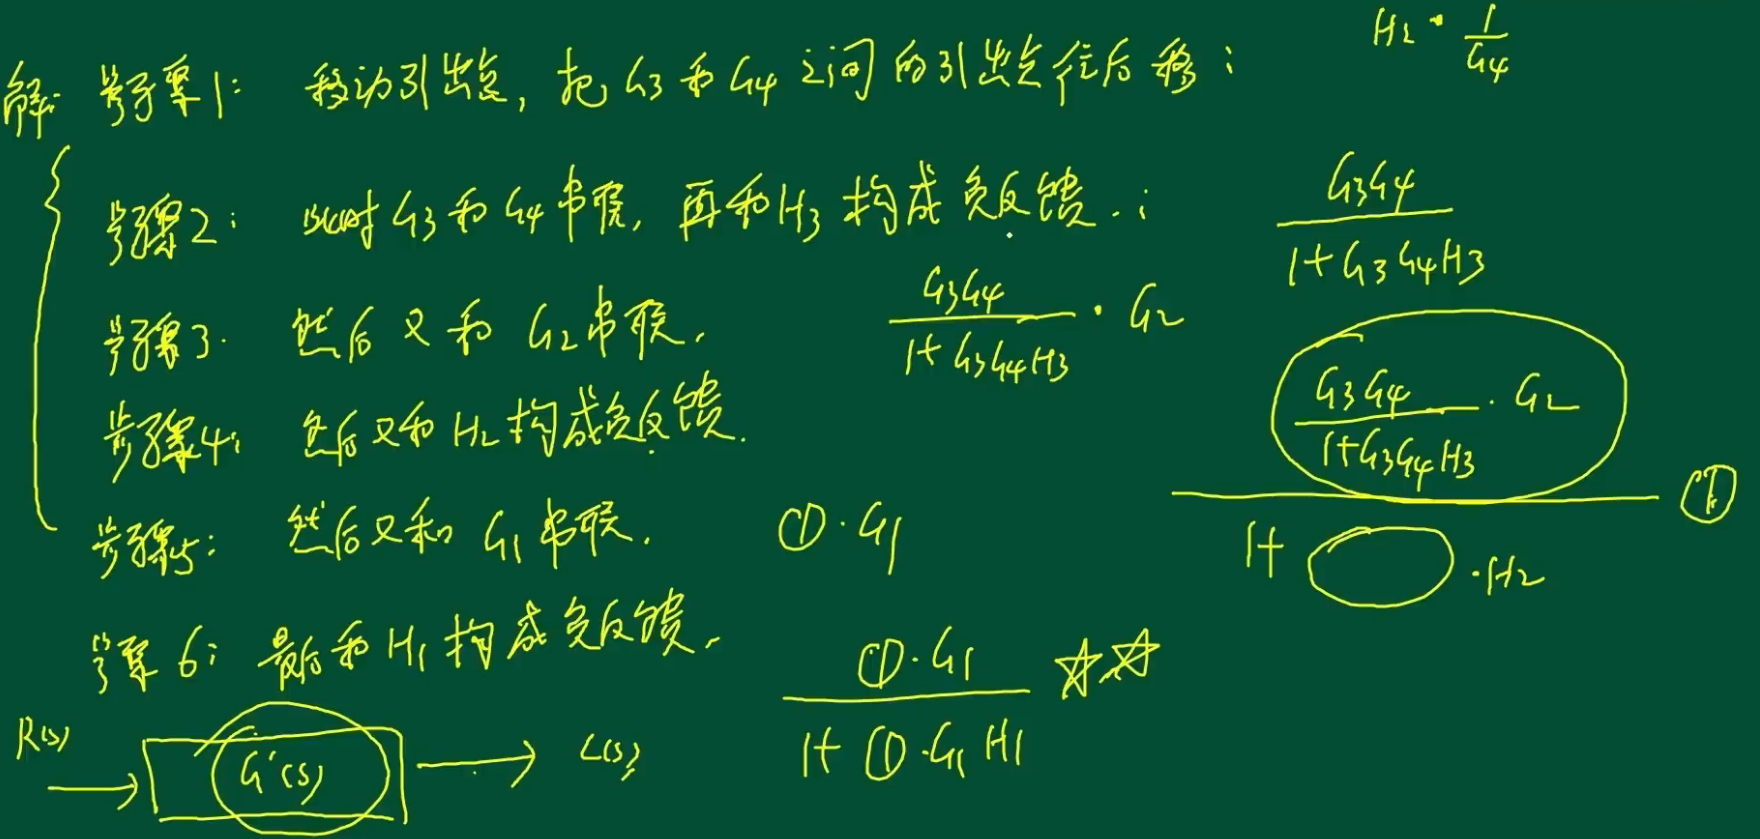 解: 步骤1: 移动引出点, 把 G3 和 G4 之间的引出点往后移; H2 · 1/G4
步骤2: 此时 G3 和 G4 串联, 再和 H3 构成负反馈.; G3G4/(1+G3G4H3)
步骤3. 然后又和 G2 串联. G3G4/(1+G3G4H3) · G2
步骤4: 然后又和 H2 构成负反馈. G3G4/(1+G3G4H3) · G2
1+ ·H2 ①
步骤5: 然后又和 G1 串联. ①·G1
步骤6: 最后和 H1 构成负反馈. ①·G1/(1+①·G1H1) ☆☆
R(s) G'(s) C(s)